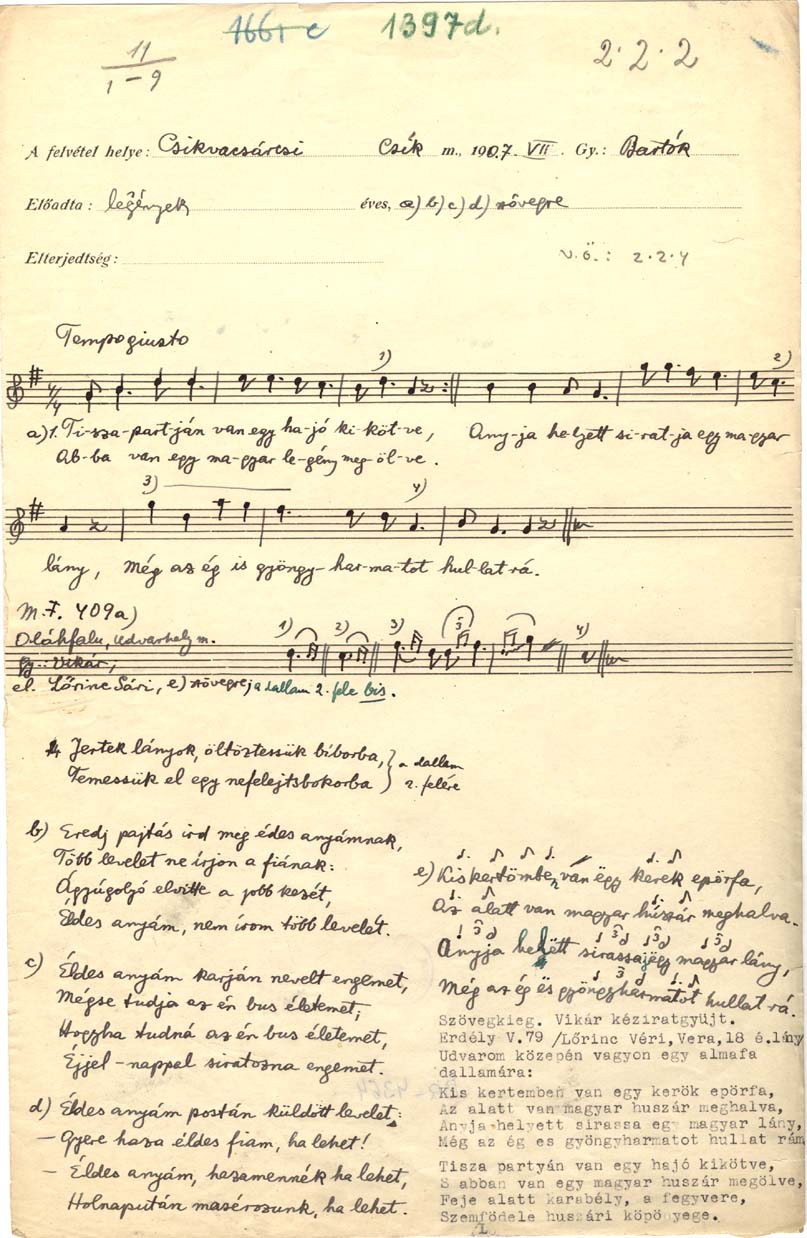 166i c 1397d.
11
1-9
2·2·2
A felvétel helye: Csikvacsárcsi Csík m., 1907. VII. Gy.: Bartók
Előadta: legények éves, a) b) c) d) szövegre
Elterjedtség:
v.ö.: 2·2·4
Tempo giusto
1)
2)
a) 1. Ti-sza-part-ján van egy ha-jó ki-köt-ve, Any-ja he-lyett si-rat-ja egy ma-gyar
Ab-ba van egy ma-gyar le-gény meg-öl-ve.
3)
4)
lány, Még az ég is gyöngy-har-ma-tot hul-lat rá.
M.F. 409a)
Oláhfalu, Udvarhely m.
Gy.: Vikár;
el. Lőrinc Sári, e) szövegre; a dallam 2. fele bis.
1) 2) 3) 4)
Jertek lányok, öltöztessük bíborba, } a dallam
Temessük el egy nefelejtsbokorba } 2. felére
b) Eredj pajtás ird meg édes anyámnak,
Több levelet ne írjon a fiának:
Ágyúgolyó elvitte a jobb kezét,
Éldes anyám, nem írom több levelét.
c) Éldes anyám karján nevelt engemet,
Mégse tudja az én bus életemet;
Hogyha tudná az én bus életemet,
Éjjel-nappel siratozna engemet.
d) Éldes anyám postán küldött levelet:
— Gyere haza éldes fiam, ha lehet!
— Éldes anyám, hazamennék ha lehet,
Holnapután masérozunk, ha lehet.
e) Kiskertömben van ëgy kerek epörfa,
Az alatt van magyar húszár meghalva.
Anyja helyëtt sirassa jëgy magyar lány,
Még az ég ës gyöngyharmatot hullat rá.
Szövegkieg. Vikár kéziratgyüjt.
Erdély V.79 /Lőrinc Véri,Vera,18 é.lány
Udvarom közepén vagyon egy almafa
dallamára:
Kis kertemben van egy kerök epörfa,
Az alatt van magyar huszár meghalva,
Anyja helyett sirassa egy magyar lány,
Még az ég es gyöngyharmatot hullat rám
Tisza partyán van egy hajó kikötve,
S abban van egy magyar huszár megölve,
Feje alatt karabély, a fegyvere,
Szemfödele huszári köpönyege.